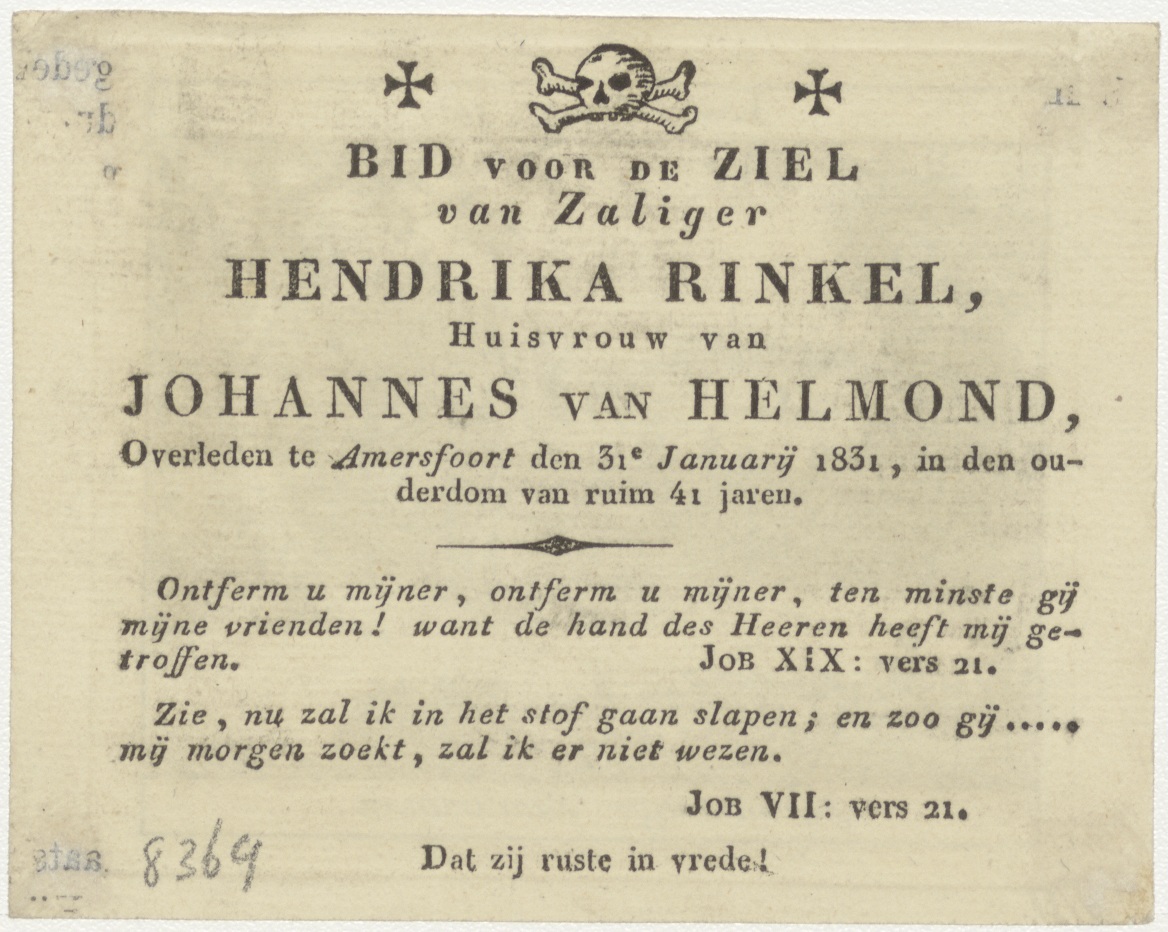 BID VOOR DE ZIEL
van Zaliger
HENDRIKA RINKEL,
Huisvrouw van
JOHANNES VAN HELMOND,
Overleden te Amersfoort den 31e Januarij 1831, in den ou-
derdom van ruim 41 jaren.
Ontferm u mijner, ontferm u mijner, ten minste gij
mijne vrienden! want de hand des Heeren heeft mij ge-
troffen. JOB XIX: vers 21.
Zie, nu zal ik in het stof gaan slapen; en zoo gij.....
mij morgen zoekt, zal ik er niet wezen.
JOB VII: vers 21.
8369 Dat zij ruste in vrede!